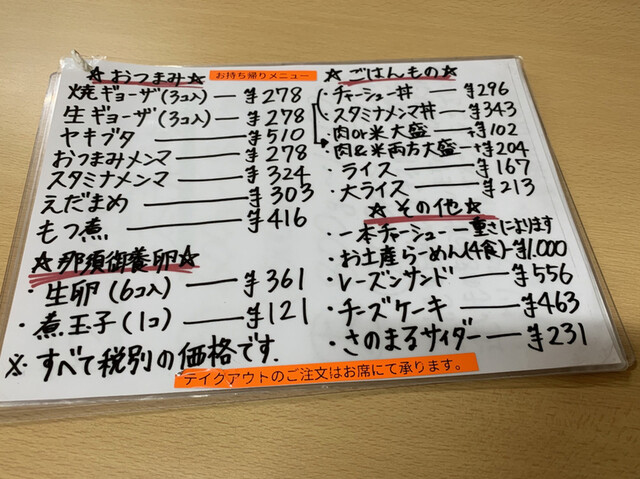 お持ち帰りメニュー
☆おつまみ☆
焼ギョーザ(3コ入)―¥278
生ギョーザ(3コ入)―¥278
ヤキブタ―¥510
おつまみメンマ―¥278
スタミナメンマ―¥324
えだまめ―¥303
もつ煮―¥416
☆那須御養卵☆
・生卵(6コ入)―¥361
・煮玉子(1コ)―¥121
※すべて税別の価格です.
☆ごはんもの☆
・チャーシュー丼―¥296
・スタミナメンマ丼―¥343
・肉or米大盛―+¥102
・肉&米両方大盛―+¥204
・ライス―¥167
・大ライス―¥213
☆その他☆
・一本チャーシュー―重さによります
・お土産らーめん(4食)―¥1.000
・レーズンサンド―¥556
・チーズケーキ―¥463
・さのまるサイダー―¥231
テイクアウトのご注文はお席にて承ります。